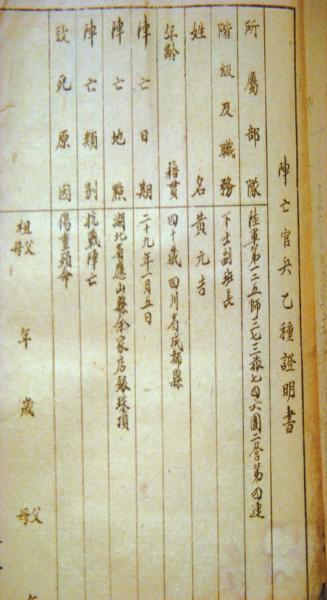 陣亡官兵乙種證明書
所屬部隊 陸軍第一二五師三七三旅七四六團二營第四連
階級及職務 下士副班長
姓名 黃元吉
年齡 籍貫 四十歲 四川省成都縣
陣亡日期 二十九年一月五日
陣亡地點 湖北省應山縣余家店
陣亡類別 抗戰陣亡
致死原因 傷重殞命
祖父母 年歲 父母